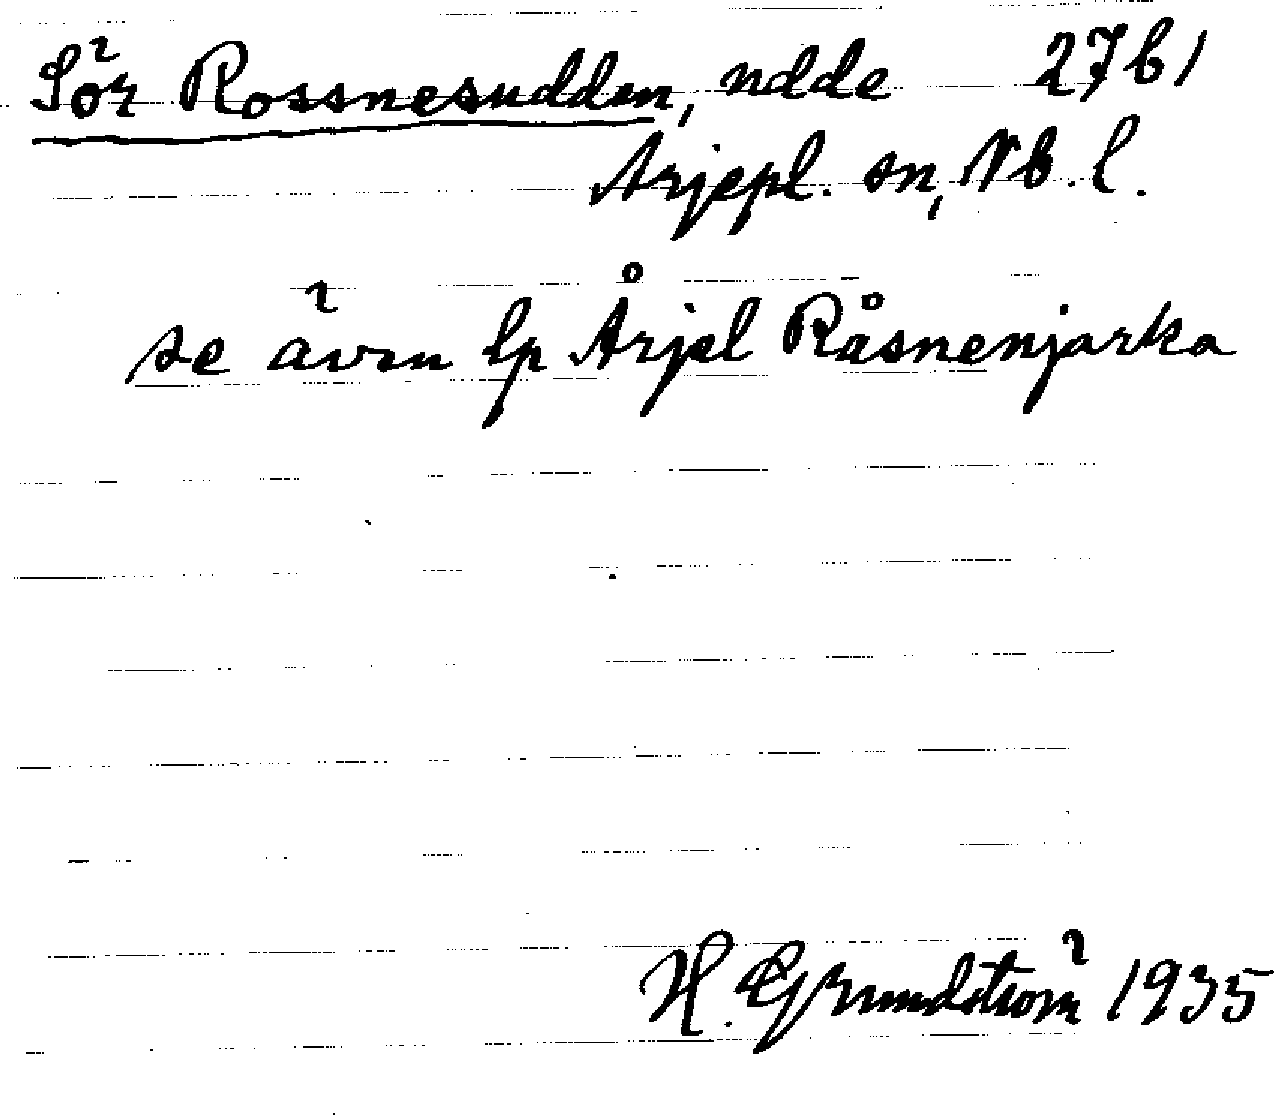 Sör Rossnesudden, udde 27b1
Arjepl. sn, Nb. l.
se även lp Årjel Råsnenjarka
H. Grundström 1935